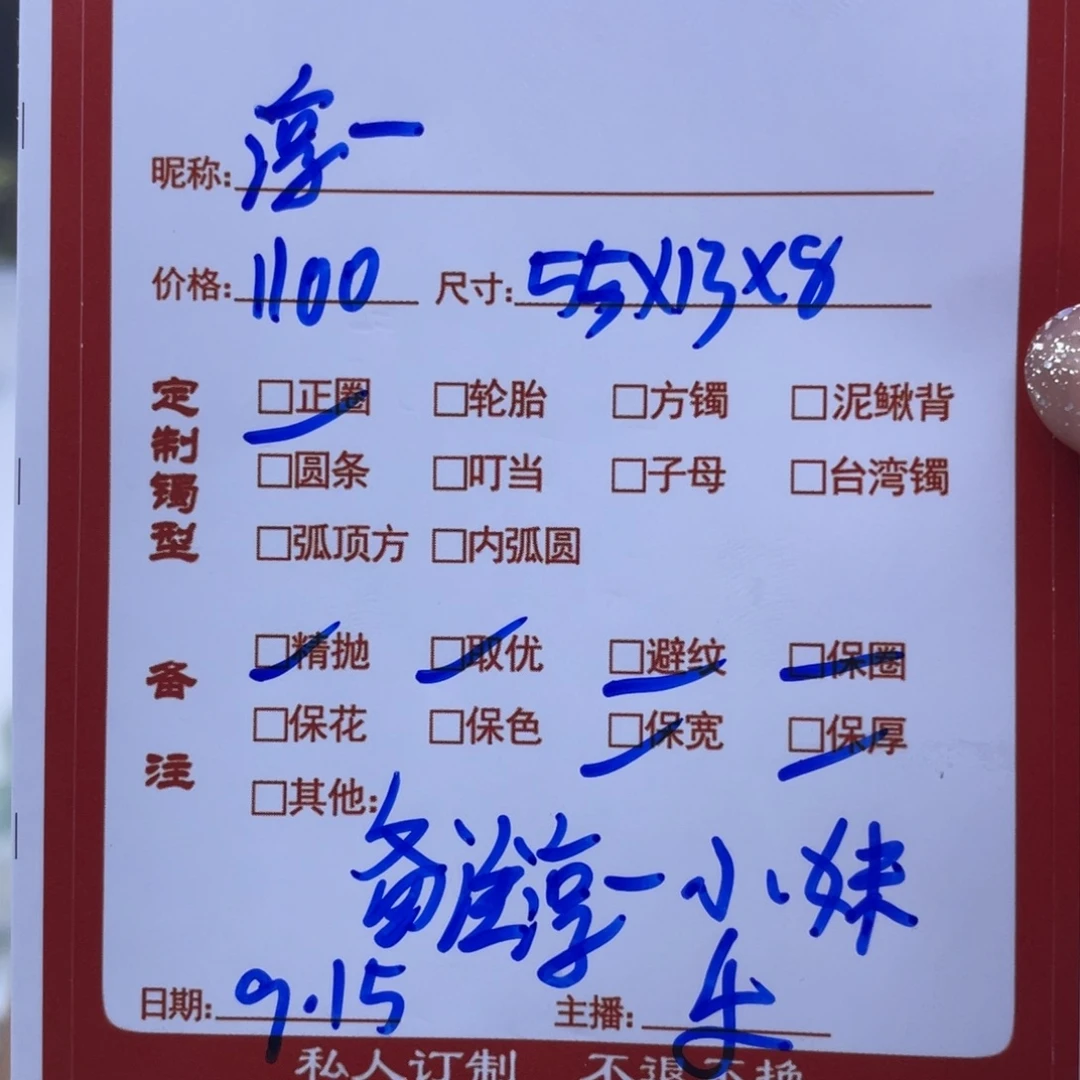 昵称:淳一
价格:1100 尺寸:55X13X8
定制镯型
□正圈 □轮胎 □方镯 □泥鳅背
□圆条 □叮当 □子母 □台湾镯
□弧顶方 □内弧圆
备注
□精抛 □取优 □避纹 □保圈
□保花 □保色 □保宽 □保厚
□其他:
备注淳一小妹
日期:9.15 主播:
私人订制 不退不换